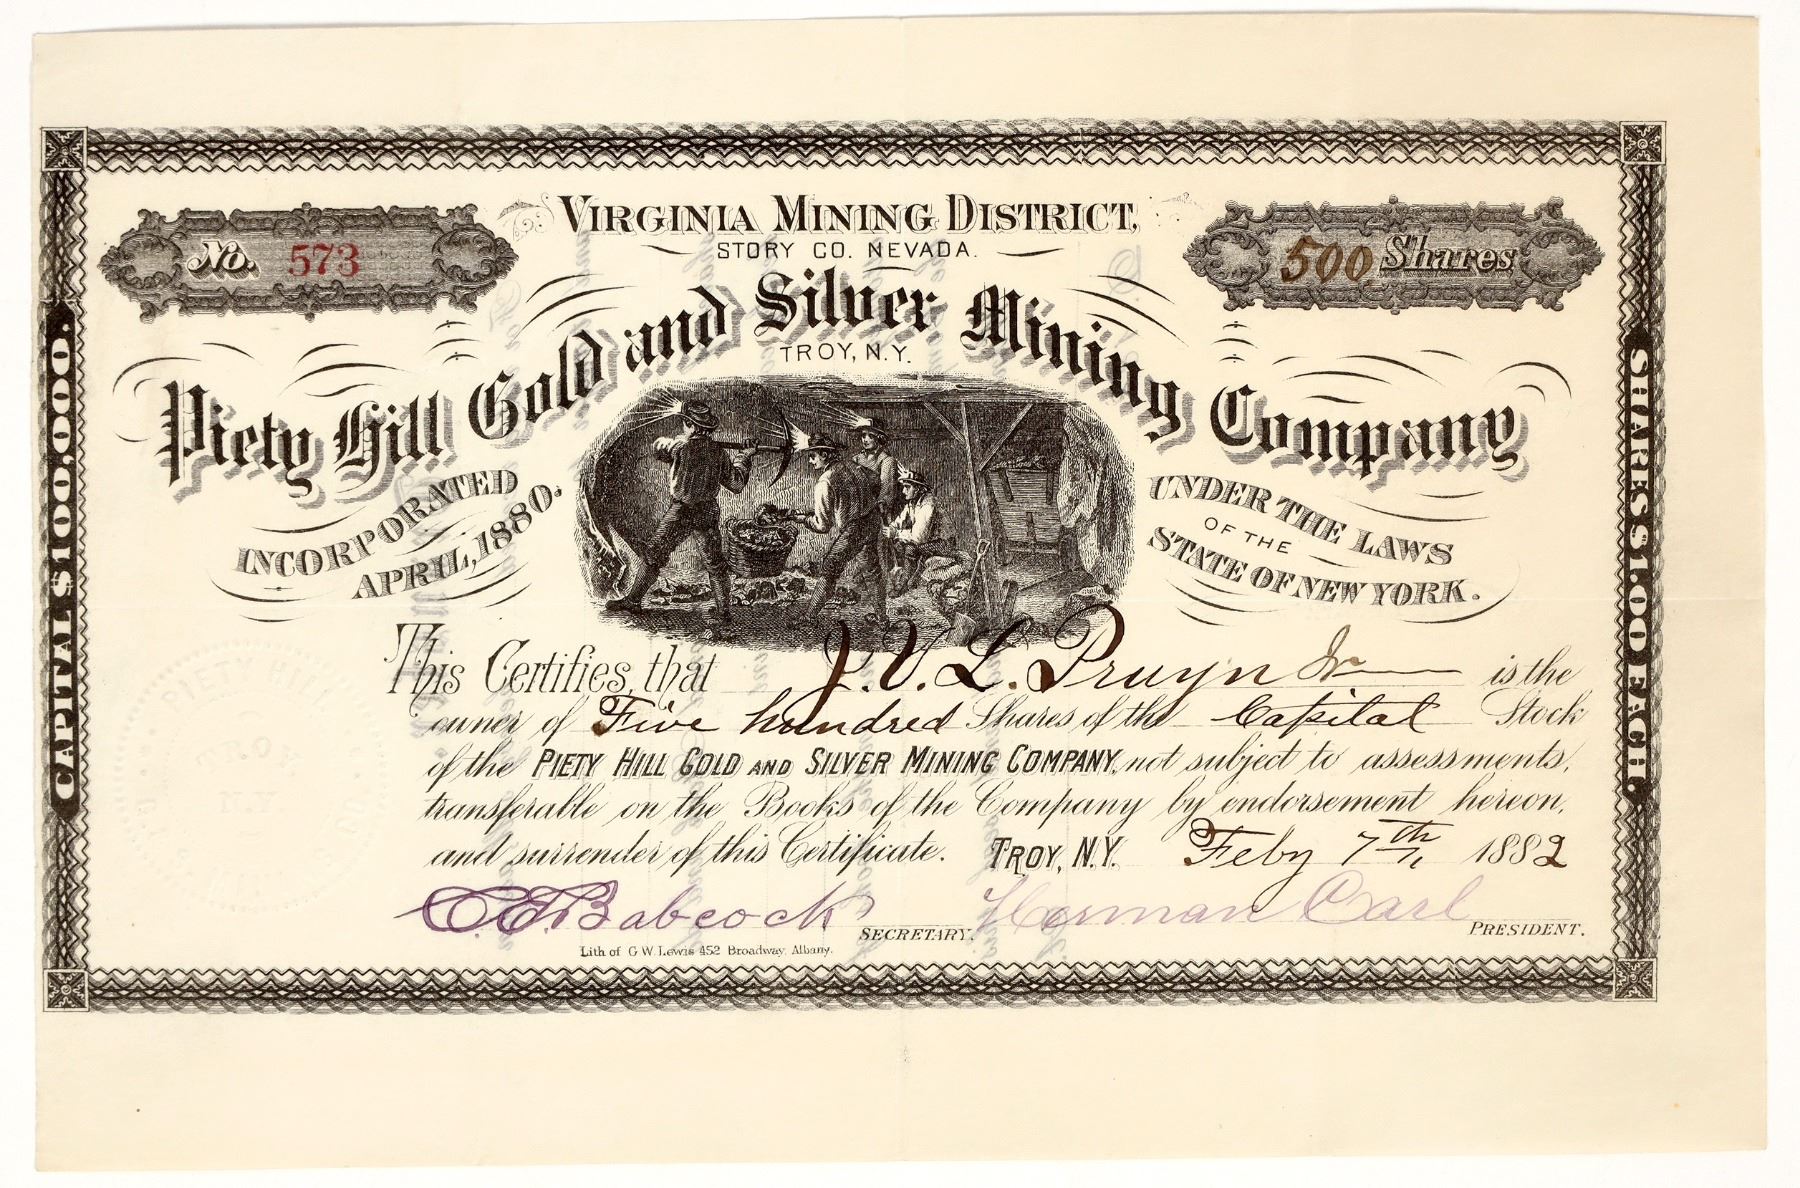 VIRGINIA MINING DISTRICT,
STORY CO. NEVADA.
No. 573
500 Shares
Piety Hill Gold and Silver Mining Company
TROY, N.Y.
INCORPORATED
APRIL, 1880.
UNDER THE LAWS
OF THE
STATE OF NEW YORK.
CAPITAL $100,000,000.
SHARES $1.00 EACH.
This Certifies, that J. V. L. Pruyn Jr is the
owner of Five hundred Shares of the Capital Stock
of the PIETY HILL GOLD AND SILVER MINING COMPANY, not subject to assessments,
transferable on the Books of the Company by endorsement hereon,
and surrender of this Certificate. TROY, N.Y. Feby 7th 1882
C. E. Babcock SECRETARY. Herman Carl PRESIDENT.
Lith of G. W. Lewis 452 Broadway, Albany.
PIETY HILL
TROY
N.Y.